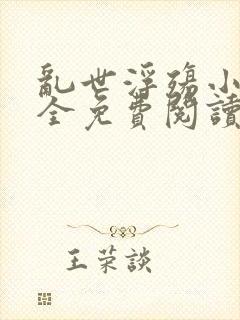 亂世浮殤小
全免費閱讀
王荣談